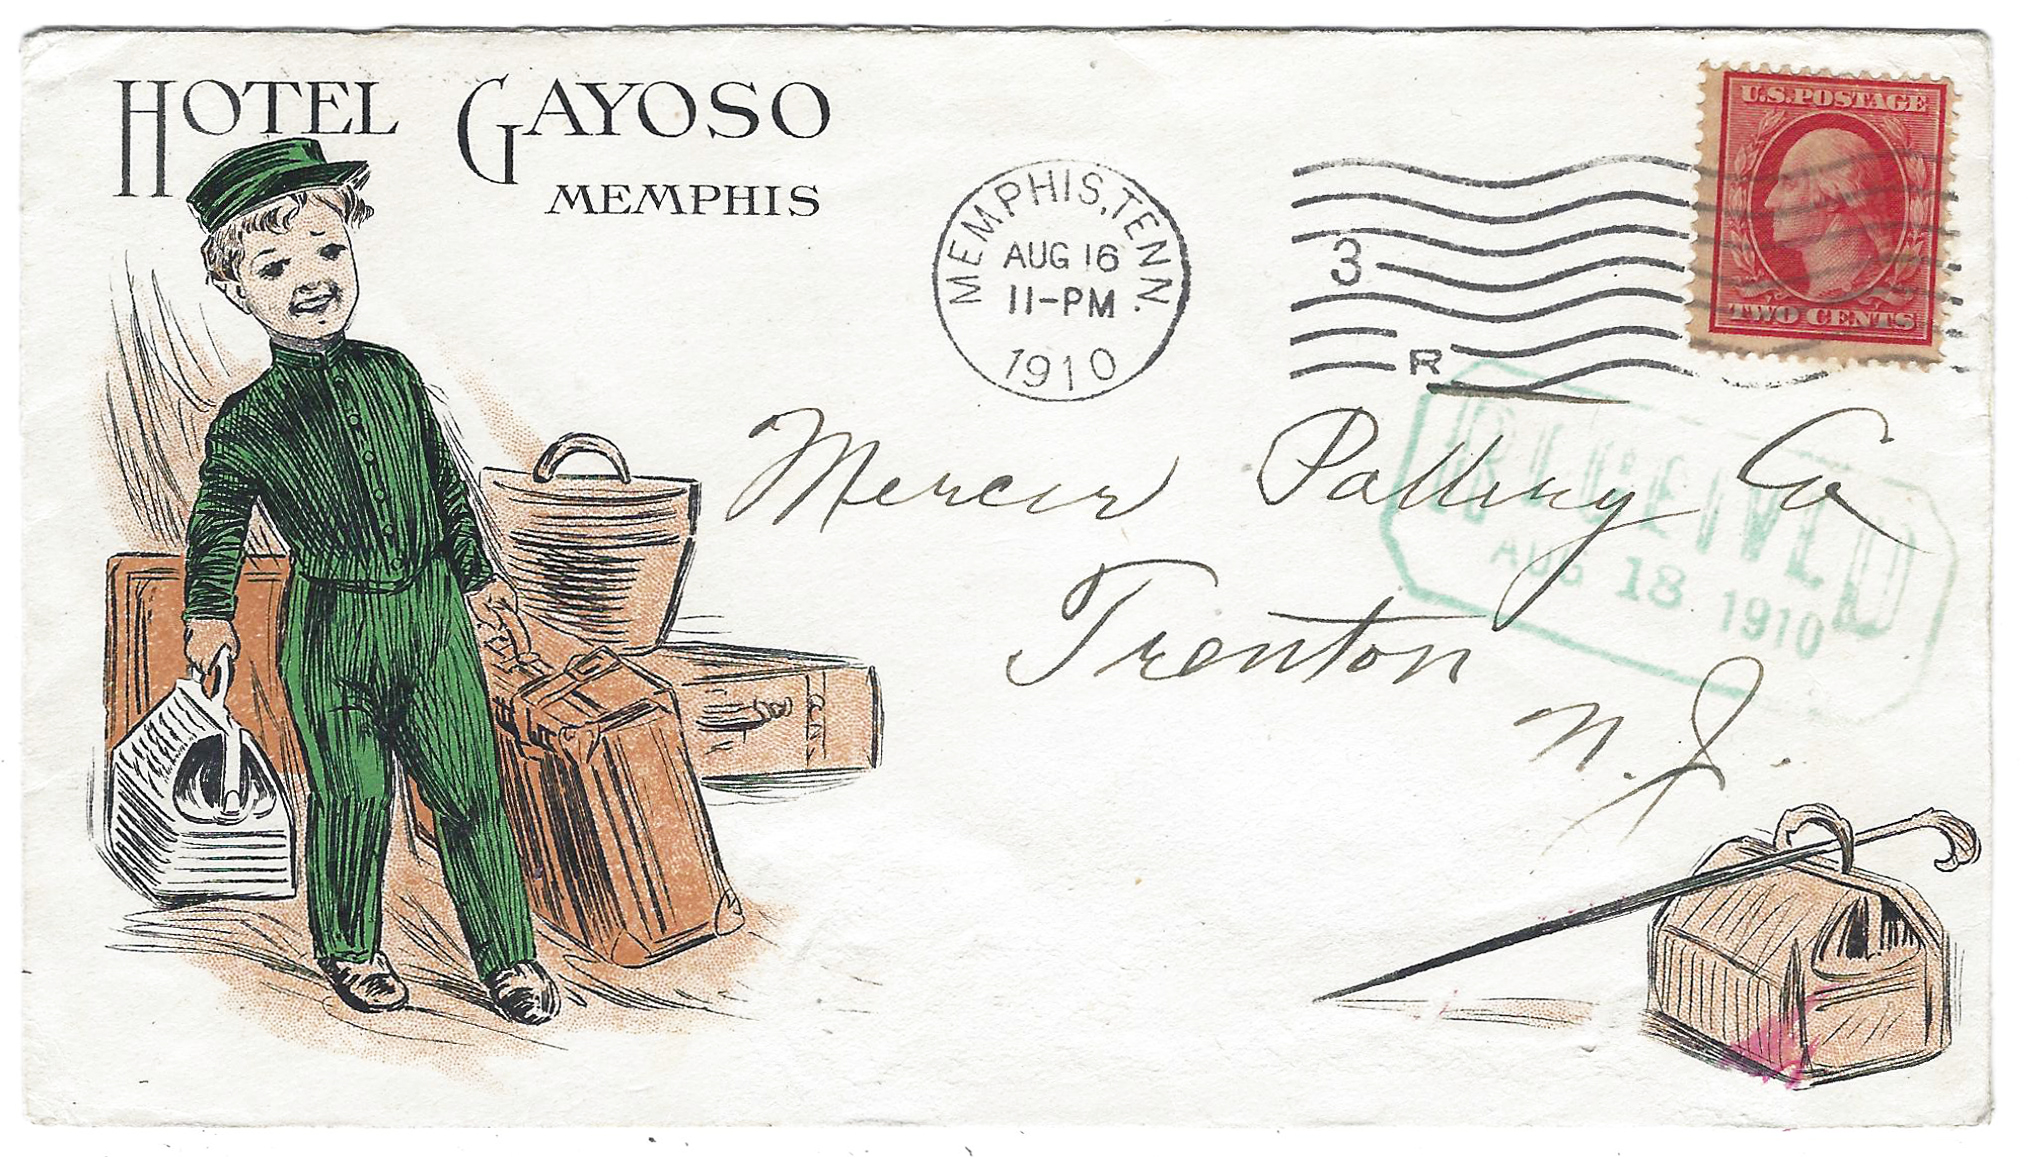 HOTEL GAYOSO
MEMPHIS
MEMPHIS, TENN.
AUG 16
11-PM
1910
3
R
U.S. POSTAGE
TWO CENTS
Mercer Pottery Co
Trenton
N. J.
RECEIVED
AUG 18 1910